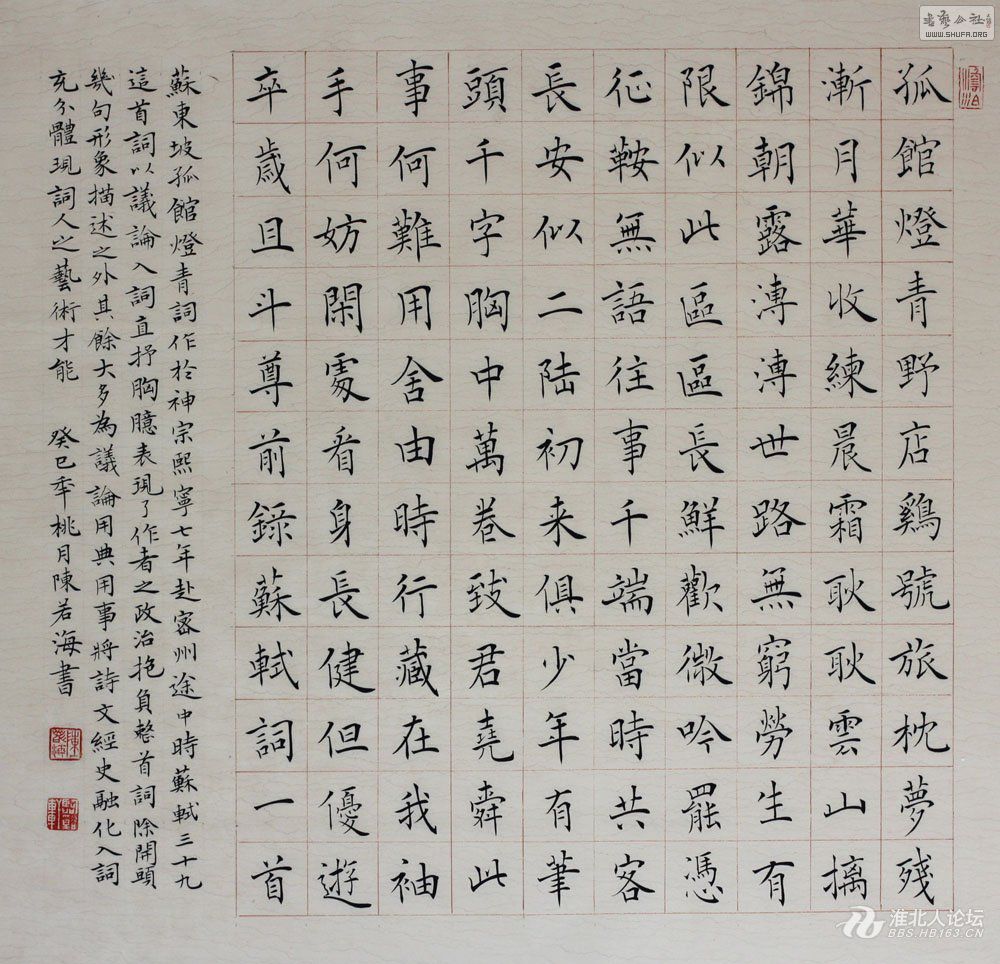 孤館燈青野店鷄號旅枕夢殘
漸月華收練晨霜耿耿雲山摛
錦朝露漙漙世路無窮勞生有
限似此區區長鮮歡微吟罷憑
征鞍無語往事千端當時共客
長安似二陸初来俱少年有筆
頭千字胸中萬卷致君堯舜此
事何難用舍由時行藏在我袖
手何妨閑處看身長健但優遊
卒歲且斗尊前錄蘇軾詞一首
蘇東坡孤館燈青詞作於神宗熙寧七年赴密州途中時蘇軾三十九
這首詞以議論入詞直抒胸臆表現了作者之政治抱負整首詞除開頭
幾句形象描述之外其餘大多為議論用典用事將詩文經史融化入詞
充分體現詞人之藝術才能 癸巳年桃月陳若海書
書藝公社
WWW.SHUFA.ORG
淮北人论坛
BBS.HB163.CN